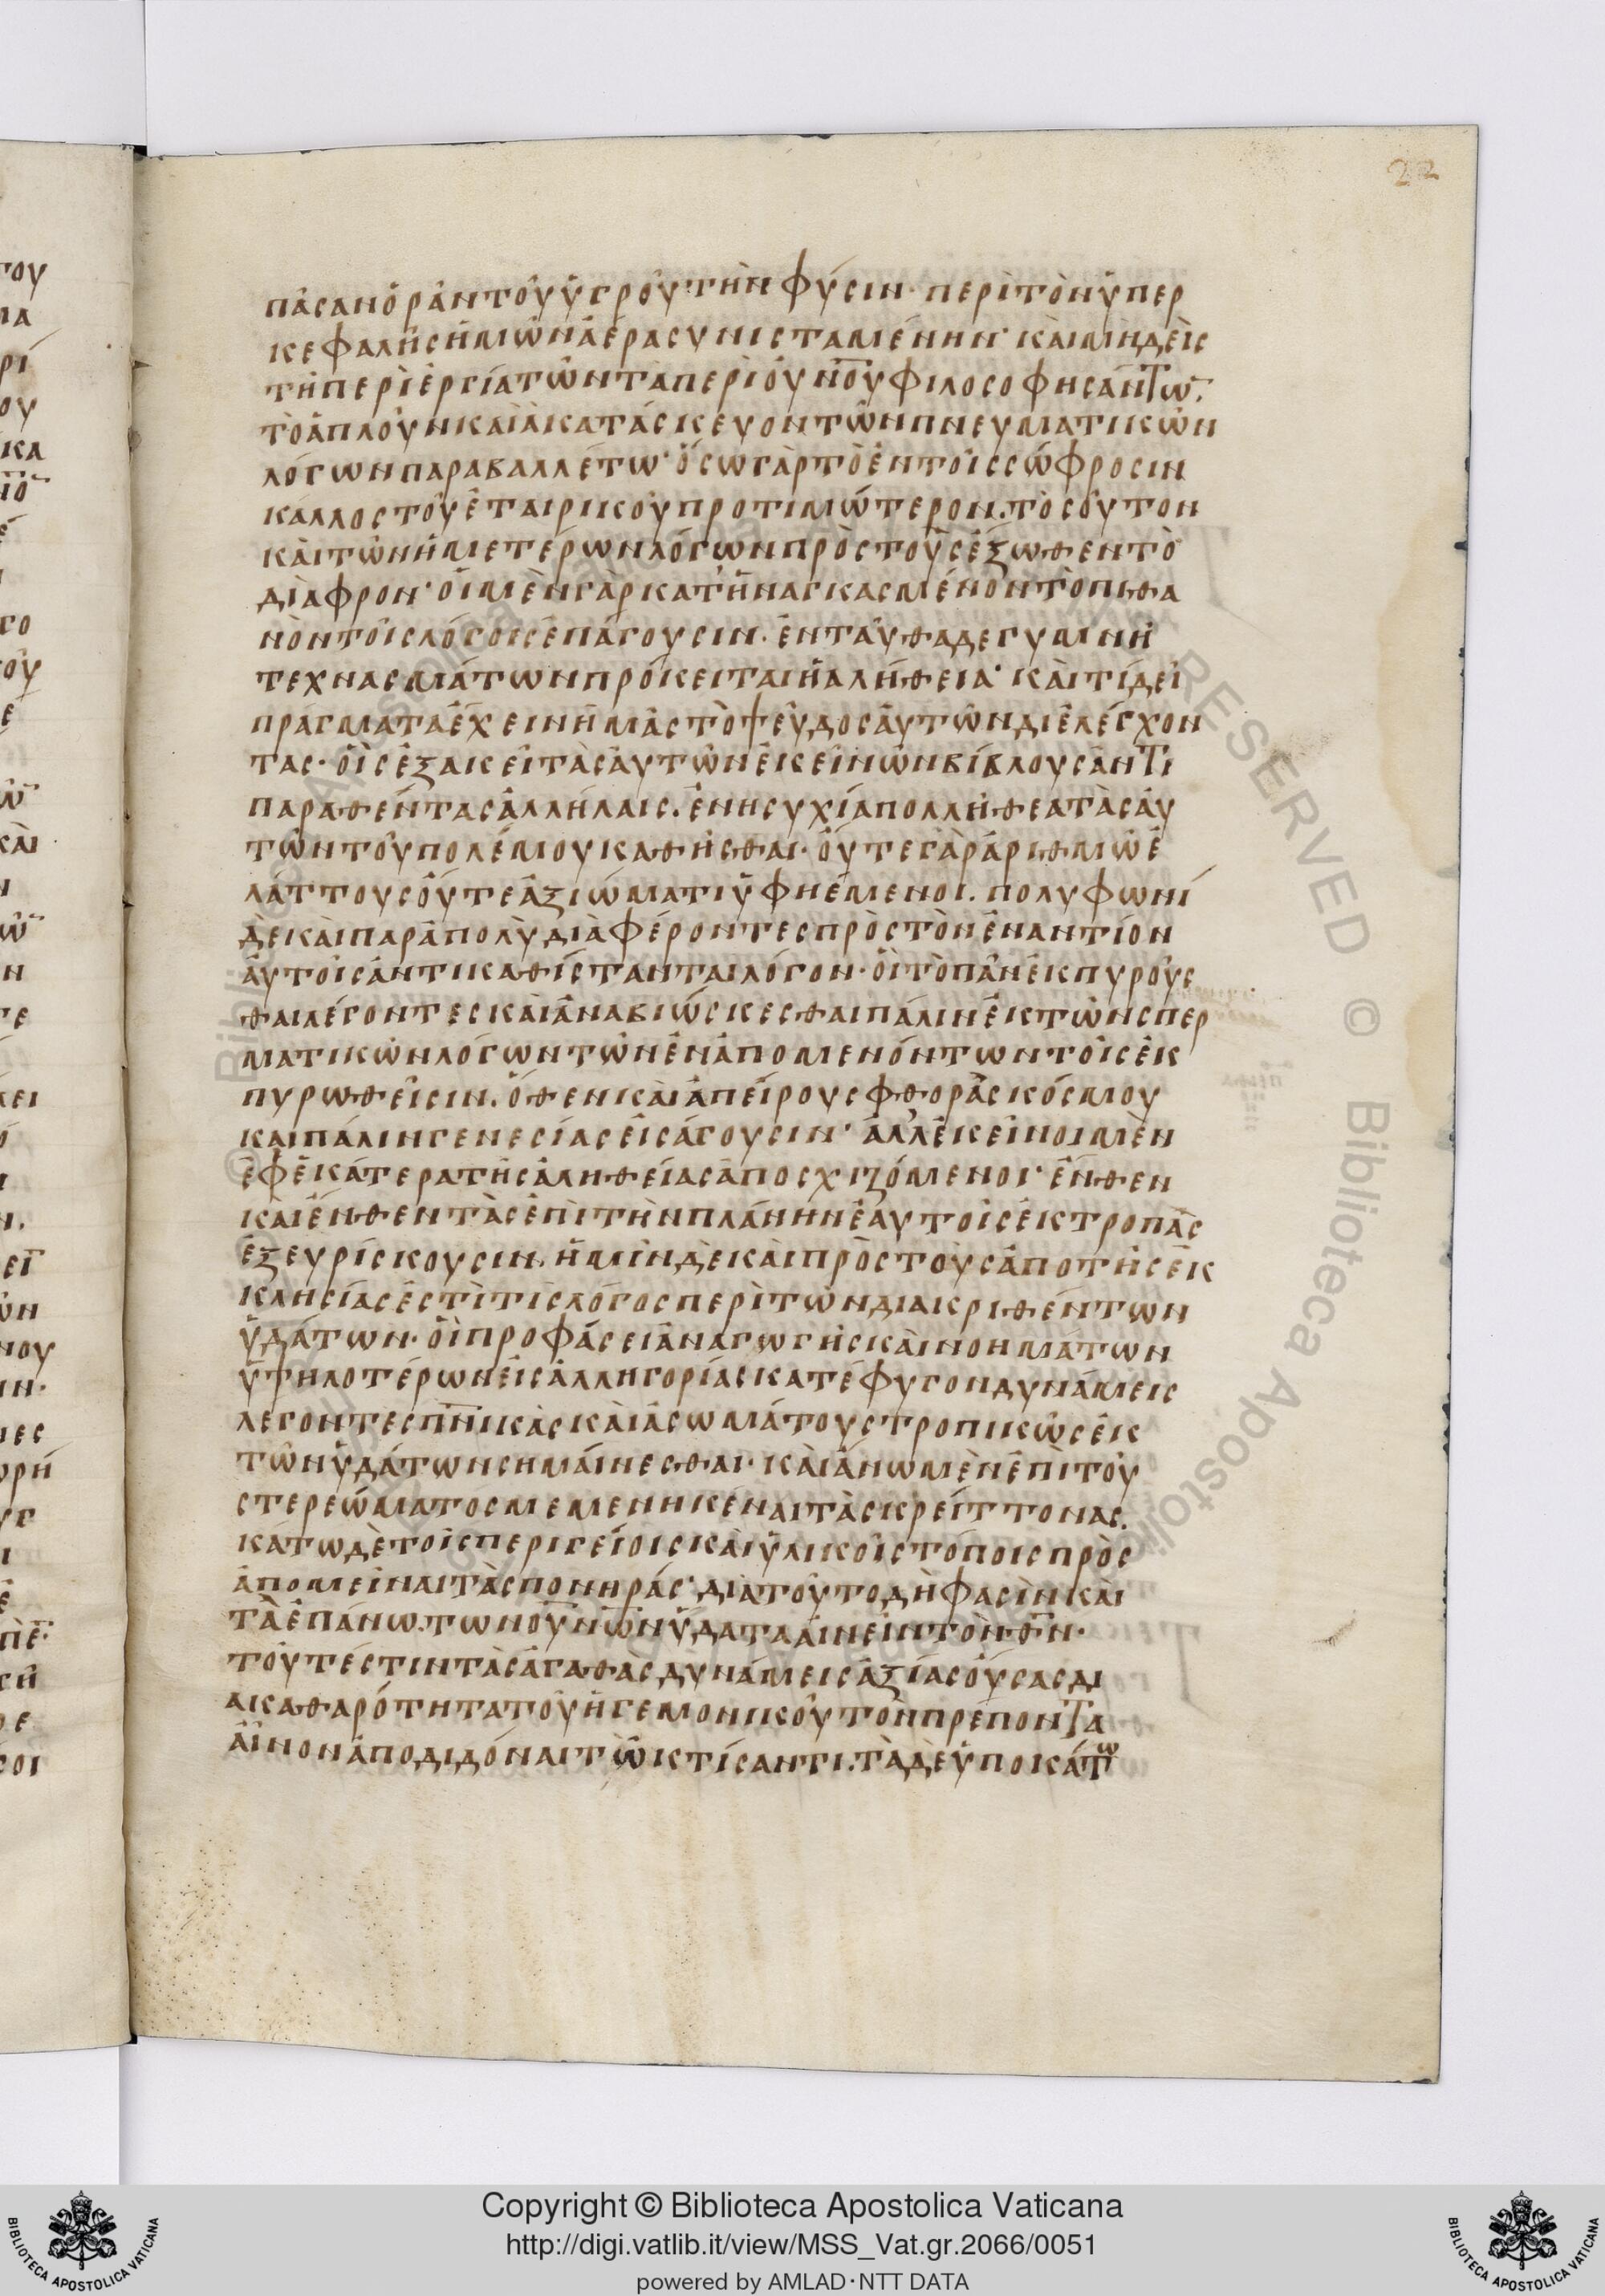 22
πᾶσαν ὁρᾶν τοῦ ὑγροῦ τὴν φύσιν· περὶ τὸν ὑπὲρ
κεφαλῆς ἡμῶν ἀέρα συνισταμένην· καὶ μηδεὶς
τῇ περιεργία τῶν τὰ περὶ οὐν̅ο̅υ φιλοσοφησάντω̅·
τὸ ἁπλοῦν καὶ ἀκατάσκευον τῶν πνευματικῶν
λόγων παραβαλλέτω· ὅσω γὰρ τὸ ἐν τοῖς σώφροσιν
κάλλος τοῦ ἑταιρικοῦ προτιμώτερον. τοσοῦτον
καὶ τῶν ἡμετέρων λόγων πρὸς τοὺς ἔξωθεν τὸ
διάφρον· οἱ μὲν γὰρ κατηναγκασμένον τὸ πιθα
νὸν τοῖς λόγοις ἐπάγουσιν. ἐνταῦθα δε γυμνὴ
τεχνασμάτων πρόκειται ἡ ἀλήθεια· καὶ τί δεῖ
πράγματα ἔχειν ἡμᾶς τὸ ψεῦδος αὐτῶν διελέγχον
τας· οἷς ἐξαικεῖ τὰς αὐτῶν ἐκείνων βίβλους ἀντι
παραθέντας ἀλλήλαις. ἐν ησυχία πολλῇ θεατὰς αὐ
τῶν τοῦ πολέμου καθῆσθαι· οὔτε γὰρ ἀριθμῶ ἐ
λάττους οὔτε ἀξιώματι ὑφηέμενοι. πολυφωνί
δε καὶ παρὰ πολὺ διὰφέροντες πρὸς τὸν ἐναντίον
αὐτοῖς ἀντικαθίστανται λόγον· οἱ τὸ πᾶν ἐκπυροῦς
θαι λέγοντες καὶ ἀναβιώσκεσθαι πάλιν ἐκ τῶν σπερ
ματικῶν λόγων τῶν ἐναπομενόντων τοῖς ἐκ
πυρωθεῖσιν. ὅθεν καὶ ἀπείρους φθορὰς κόσμου
και πάλιν γενεσίας εἰσάγουσιν· ἀλλ' ἐκεῖνοι μὲν
ἐφ' ἑκάτερα τῆς ἀληθείας ἀποσχιζόμενοι· ἔνθεν
καὶ ἔνθεν τὰς ἐπὶ τὴν πλάνην ἑαυτοῖς ἐκτροπὰς
ἐξευρίσκουσιν. ἡμῖν δὲ καὶ πρὸς τοὺς ἀπο τῆς ἐκ
κλησίας ἐστὶ τὶς λόγος περὶ τῶν διακριθέντων
ὑδάτων· οἳ προφάσει ἀναγωγῆς καὶ νοημάτων
ὑψηλοτέρων εἰς ἀλληγορίας κατέφυγον δυνάμεις
λεγοντες π̅ν̅ικὰς καὶ ἀσωμάτους τροπικῶς ἐκ
τῶν ὑδάτων σημαίνεσθαι· καὶ ἄνω μὲν ἐπὶ τοῦ
στερεώματος μεμενηκέναι τὰς κρείττονας.
κατω δὲ τοῖς περιγείοις καὶ ὑλικοῖς τόποις πρὸς
ἀπομεῖναι τὰς πονηράς· διατοῦτο δὴ φασὶν καὶ
τὰ ἐπάνω. των οὐν̅ω̅ν ὕδατα αἰνεῖν τὸν θ̅ν̅·
τοῦτέστιν τὰς ἀγαθὰς δυνάμεις ἀξίας οὔσας δι
α καθαρότητα τοῦ ἡγεμονικοῦ τὸν πρέποντα
αἶνον ἀποδιδόναι τῶ κτίσαντι. τὰ δὲ ὑποκάτω
Copyright © Biblioteca Apostolica Vaticana
http://digi.vatlib.it/view/MSS_Vat.gr.2066/0051
powered by AMLAD·NTT DATA
BIBLIOTECA APOSTOLICA VATICANA
BIBLIOTECA APOSTOLICA VATICANA